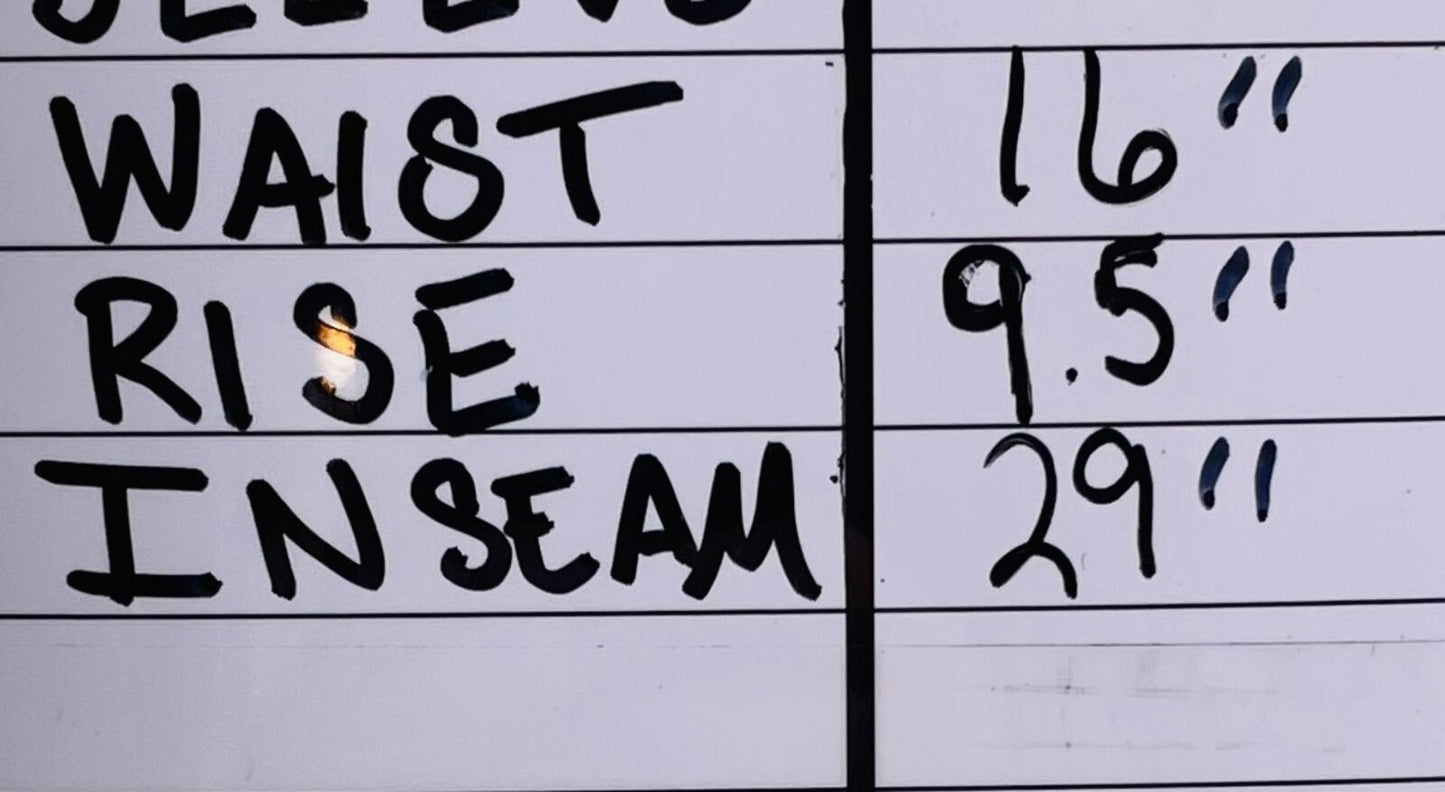 WAIST 16"
RISE 9.5"
INSEAM 29"